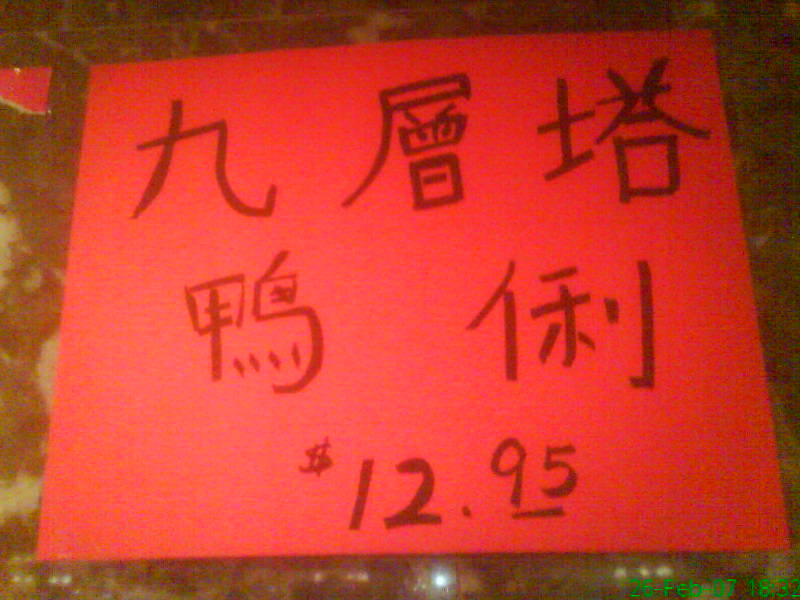 九層塔
鴨俐
$12.95
26-Feb-07 18:32